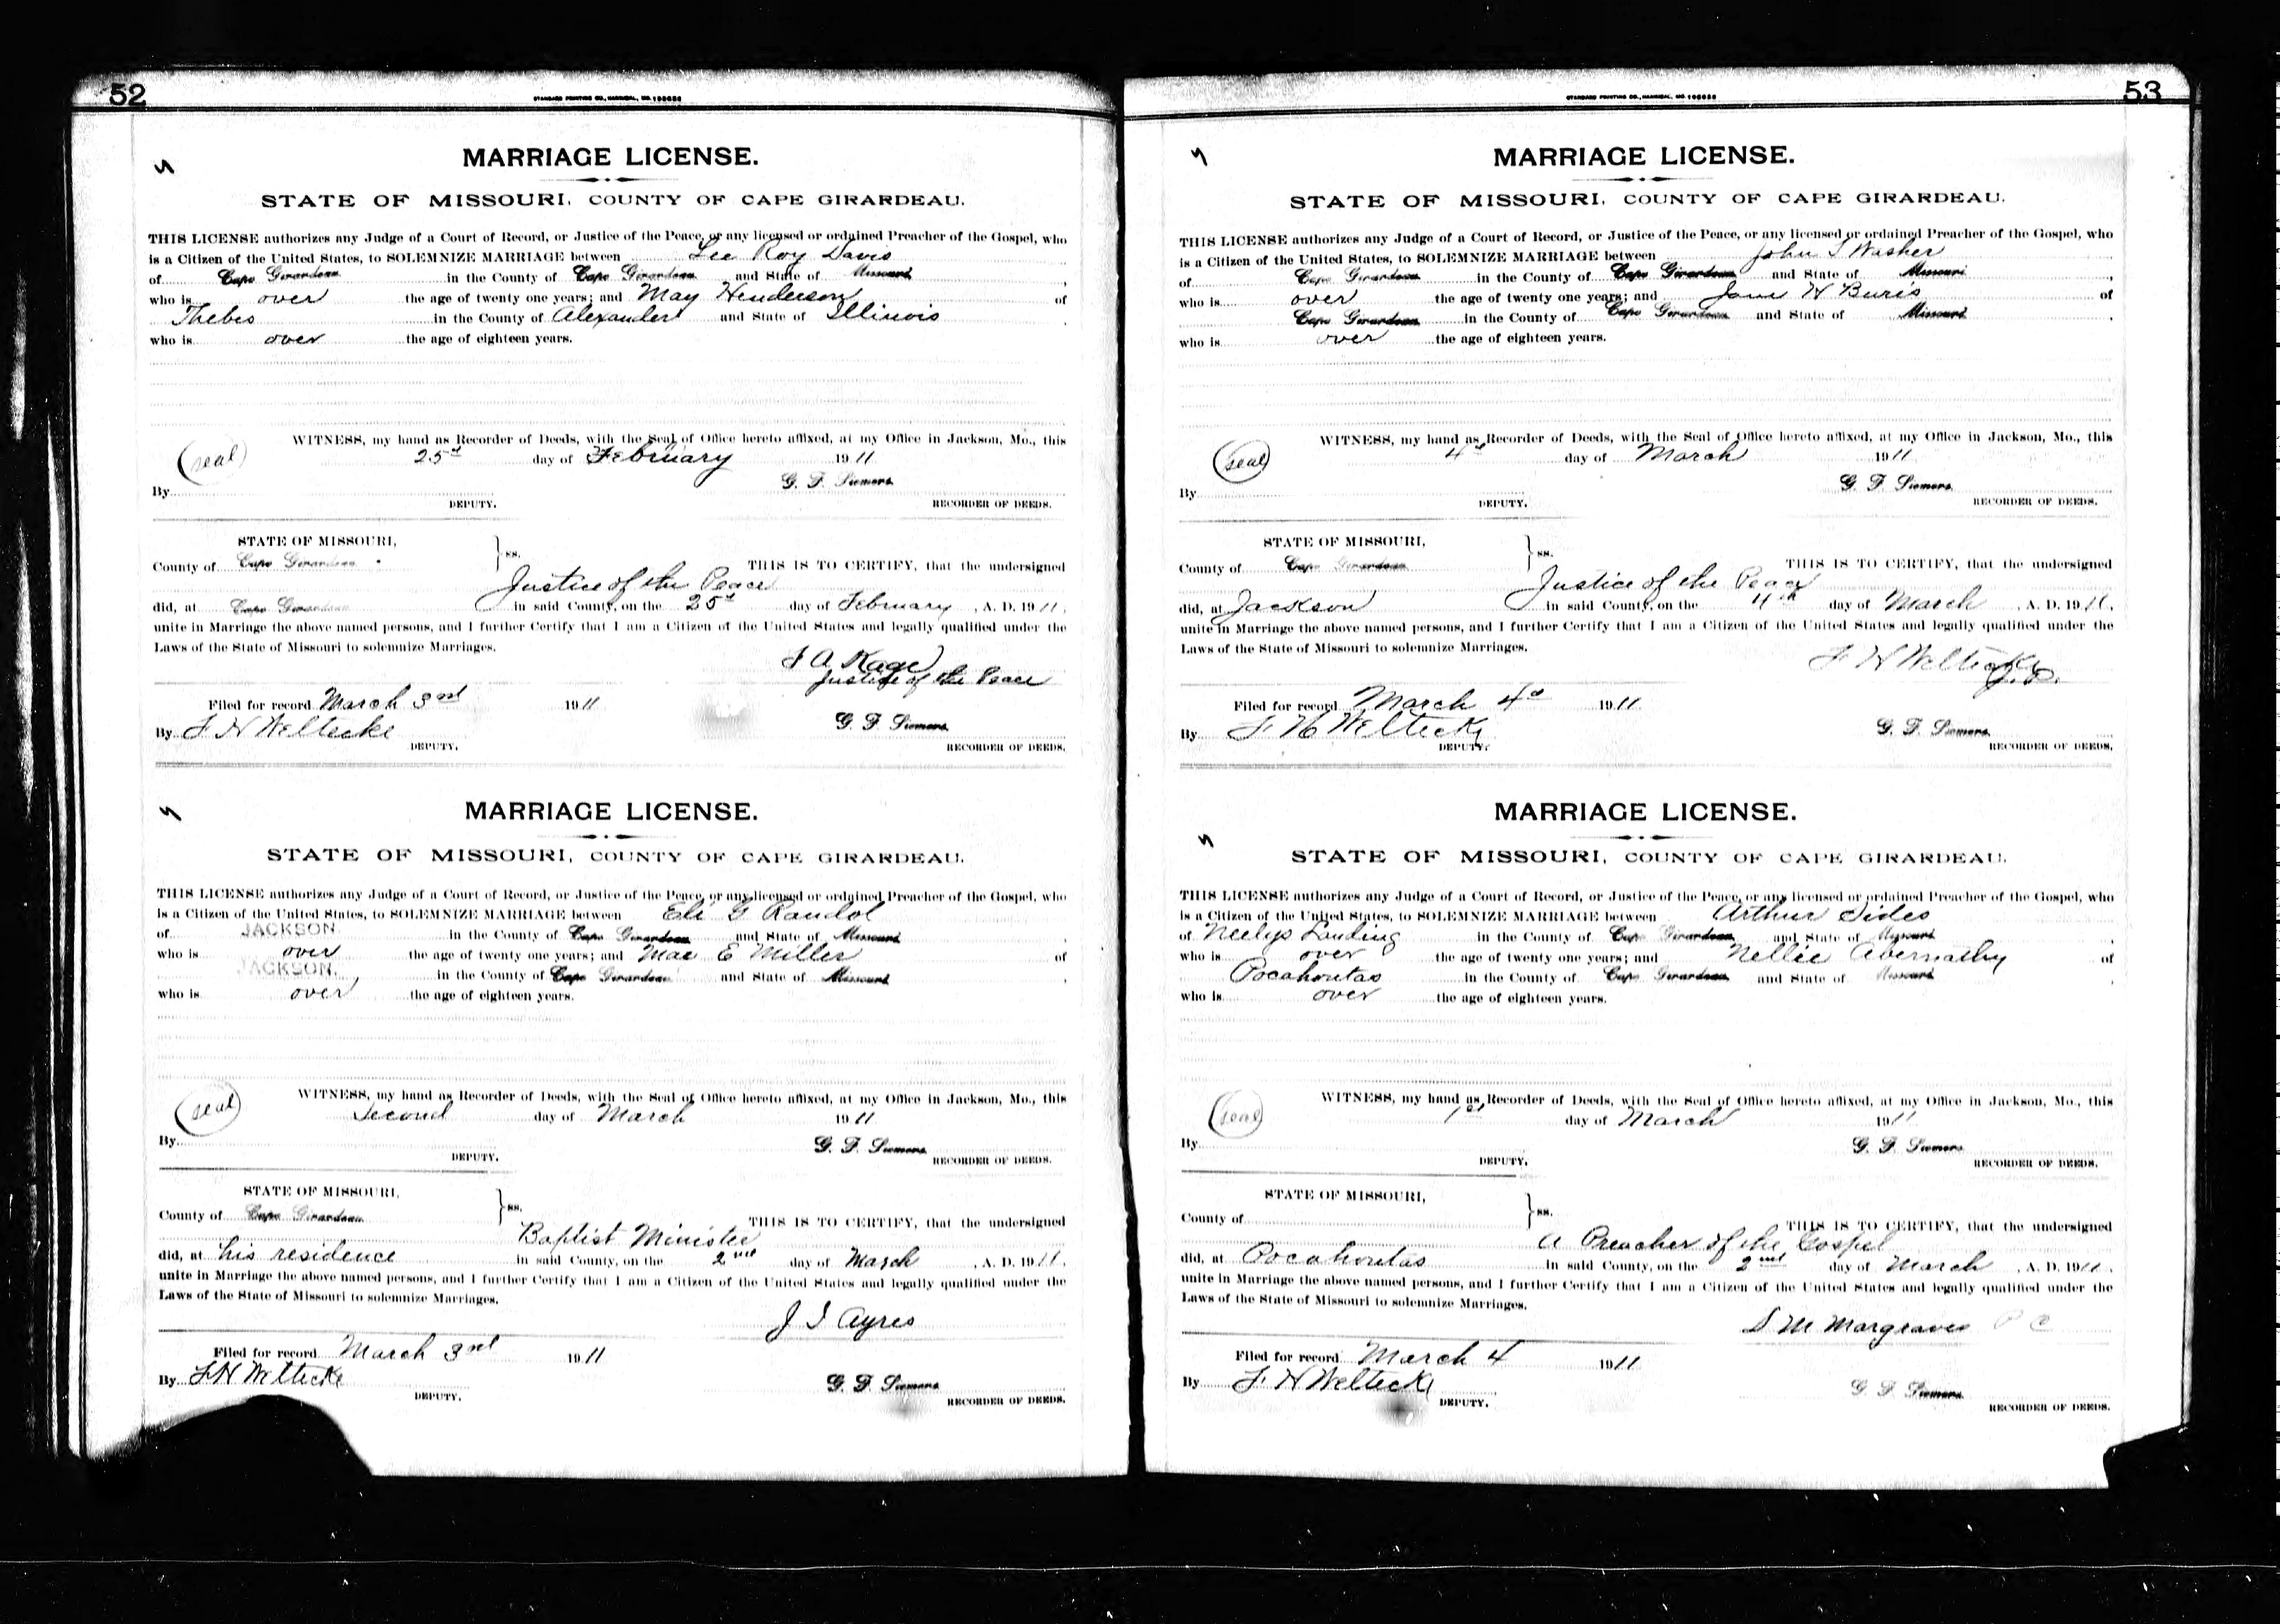 52
STANDARD PRINTING CO., HANNIBAL, MO.
MARRIAGE LICENSE.
STATE OF MISSOURI, COUNTY OF CAPE GIRARDEAU.
THIS LICENSE authorizes any Judge of a Court of Record, or Justice of the Peace, or any licensed or ordained Preacher of the Gospel, who
is a Citizen of the United States, to SOLEMNIZE MARRIAGE between Lee Roy Davis
of Cape Girardeau in the County of Cape Girardeau and State of Missouri,
who is over the age of twenty one years; and May Henderson of
Thebes in the County of Alexander and State of Illinois,
who is over the age of eighteen years.
WITNESS, my hand as Recorder of Deeds, with the Seal of Office hereto affixed, at my Office in Jackson, Mo., this
(seal) 25th day of February 1911
G. F. Siemers
By DEPUTY. RECORDER OF DEEDS.
STATE OF MISSOURI,
County of Cape Girardeau } ss. THIS IS TO CERTIFY, that the undersigned
Justice of the Peace
did, at Cape Girardeau in said County, on the 25th day of February, A. D. 1911,
unite in Marriage the above named persons, and I further Certify that I am a Citizen of the United States and legally qualified under the
Laws of the State of Missouri to solemnize Marriages.
Justice of the Peace
Filed for record March 3rd 1911
By F H Weltecke DEPUTY. G. F. Siemers RECORDER OF DEEDS.
MARRIAGE LICENSE.
STATE OF MISSOURI, COUNTY OF CAPE GIRARDEAU.
THIS LICENSE authorizes any Judge of a Court of Record, or Justice of the Peace, or any licensed or ordained Preacher of the Gospel, who
is a Citizen of the United States, to SOLEMNIZE MARRIAGE between Eli G Randol
of JACKSON. in the County of Cape Girardeau and State of Missouri,
who is over the age of twenty one years; and Mae E Miller of
JACKSON. in the County of Cape Girardeau and State of Missouri,
who is over the age of eighteen years.
WITNESS, my hand as Recorder of Deeds, with the Seal of Office hereto affixed, at my Office in Jackson, Mo., this
(seal) Second day of March 1911
G. F. Siemers
By DEPUTY. RECORDER OF DEEDS.
STATE OF MISSOURI,
County of Cape Girardeau } ss. THIS IS TO CERTIFY, that the undersigned
Baptist Minister
did, at his residence in said County, on the 2nd day of March, A. D. 1911,
unite in Marriage the above named persons, and I further Certify that I am a Citizen of the United States and legally qualified under the
Laws of the State of Missouri to solemnize Marriages.
J I Ayres
Filed for record March 3rd 1911
By F H Weltecke DEPUTY. G. F. Siemers RECORDER OF DEEDS.
53
STANDARD PRINTING CO., HANNIBAL, MO.
MARRIAGE LICENSE.
STATE OF MISSOURI, COUNTY OF CAPE GIRARDEAU.
THIS LICENSE authorizes any Judge of a Court of Record, or Justice of the Peace, or any licensed or ordained Preacher of the Gospel, who
is a Citizen of the United States, to SOLEMNIZE MARRIAGE between John T Washer
of Cape Girardeau in the County of Cape Girardeau and State of Missouri,
who is over the age of twenty one years; and Jane W Buris of
Cape Girardeau in the County of Cape Girardeau and State of Missouri,
who is over the age of eighteen years.
WITNESS, my hand as Recorder of Deeds, with the Seal of Office hereto affixed, at my Office in Jackson, Mo., this
(seal) 4th day of March 1911
G. F. Siemers
By DEPUTY. RECORDER OF DEEDS.
STATE OF MISSOURI,
County of Cape Girardeau } ss. THIS IS TO CERTIFY, that the undersigned
Justice of the Peace
did, at Jackson in said County, on the 4th day of March, A. D. 1911,
unite in Marriage the above named persons, and I further Certify that I am a Citizen of the United States and legally qualified under the
Laws of the State of Missouri to solemnize Marriages.
F H Weltecke
J. P.
Filed for record March 4th 1911
By F H Weltecke DEPUTY. G. F. Siemers RECORDER OF DEEDS.
MARRIAGE LICENSE.
STATE OF MISSOURI, COUNTY OF CAPE GIRARDEAU.
THIS LICENSE authorizes any Judge of a Court of Record, or Justice of the Peace, or any licensed or ordained Preacher of the Gospel, who
is a Citizen of the United States, to SOLEMNIZE MARRIAGE between Arthur Sides
of Neelys Landing in the County of Cape Girardeau and State of Missouri,
who is over the age of twenty one years; and Nellie Abernathy of
Pocahontas in the County of Cape Girardeau and State of Missouri,
who is over the age of eighteen years.
WITNESS, my hand as Recorder of Deeds, with the Seal of Office hereto affixed, at my Office in Jackson, Mo., this
(seal) 1st day of March 1911
G. F. Siemers
By DEPUTY. RECORDER OF DEEDS.
STATE OF MISSOURI,
County of } ss. THIS IS TO CERTIFY, that the undersigned
a Preacher of the Gospel
did, at Pocahontas in said County, on the 2nd day of March, A. D. 1911,
unite in Marriage the above named persons, and I further Certify that I am a Citizen of the United States and legally qualified under the
Laws of the State of Missouri to solemnize Marriages.
S M Margraves
Filed for record March 4 1911
By F H Weltecke DEPUTY. G. F. Siemers RECORDER OF DEEDS.